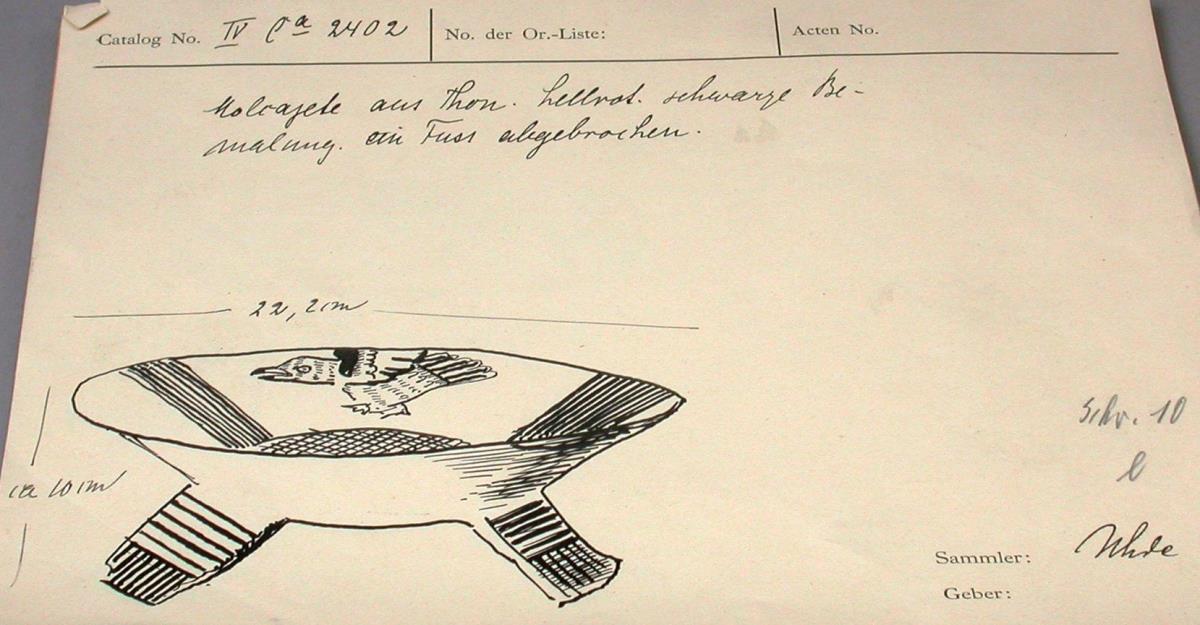 Catalog No. IV Ca 2402 No. der Or.-Liste: Acten No.
Molcajete aus Thon. hellrot. schwarze Be-
malung. ein Fuss abgebrochen.
22,2 cm
ca 10 cm
Schr. 10
l
Sammler: Uhde
Geber: